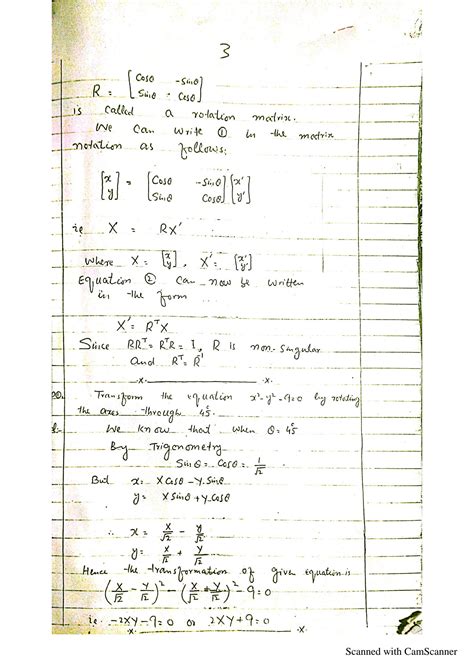 3
R = [Cosθ -Sinθ
Sinθ Cosθ]
is called a rotation matrix.
We Can write ① in the matrix
notation as follows:
[x
y] = [Cosθ -Sinθ
Sinθ Cosθ] [x'
y']
ie X = RX'
Where X = [x
y], X' = [x'
y']
Equation ② Can now be written
in the form
X' = RᵀX
Since RRᵀ = RᵀR = I, R is non-Singular
and Rᵀ = R⁻¹
-x- -x-
Transform the equation x²-y²-9=0 by rotating
the axes through 45°.
We know that when θ = 45°
By Trigonometry
Sinθ = Cosθ = 1/√2
But x = XCosθ - YSinθ
y = XSinθ + YCosθ
∴ x = X/√2 - Y/√2
y = X/√2 + Y/√2
Hence the transformation of given equation is
(X/√2 - Y/√2)² - (X/√2 + Y/√2)² - 9 = 0
ie. -2XY-9=0 or 2XY+9=0
-x- -x-
Scanned with CamScanner